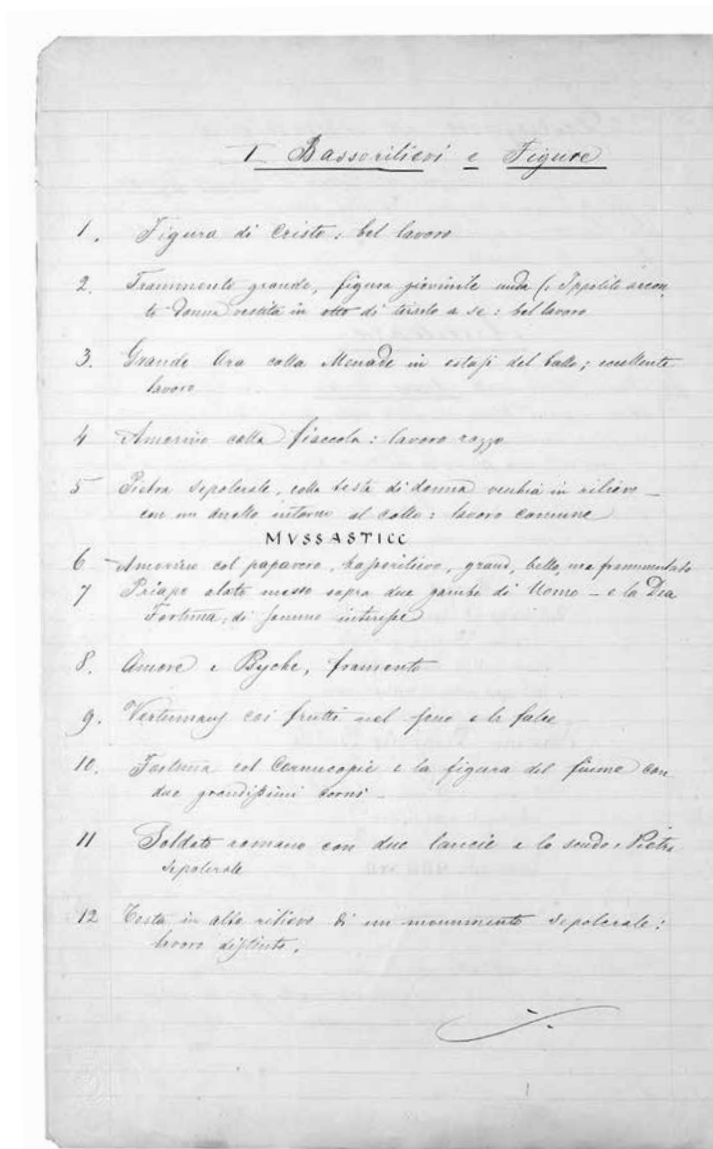 I Bassorilievi e Figure
1. Figura di Cristo: bel lavoro
2. Frammento grande, figura giovinile nuda (: Ippolito accan
to donna vestita in atto di tirarlo a se: bel lavoro
3. Grande Ara colla Menade in estasi del ballo; eccellente
lavoro
4 Amorino colla fiaccola: lavoro rozzo
5 Pietra sepolcrale, colla testa di donna vechia in rilievo –
con un anello intorno al collo: lavoro comune
MVSSASTICC
6 Amorino col papavero, bassorilievo, grand, bello, ma frammentato
7 Priapo alato messo sopra due gambe di Uomo – e la Dea
Fortuna; di
8. Amore e Psyche, framento
9. Vertumnus coi frutti nel seno e la falce
10. Fortuna col Cornucopie e la figura del fiume con
due grandissimi corni –
11 Soldato romano con due lancie e lo scudo: Pietra
sepolcrale
12 Testa in alto rilievo di un monumento sepolcrale:
lavoro distinto.